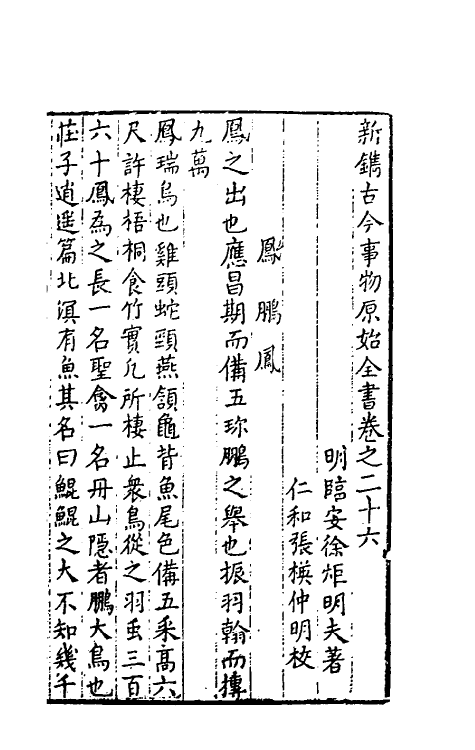 新鐫古今事物原始全書卷之二十六
明臨安徐炬明夫著
仁和張楧仲明校
鳳 鵬 鳳
鳳之出也應昌期而備五珎鵬之舉也振羽翰而摶
九萬
鳳瑞鳥也雞頭蛇頸燕頷龜背魚尾色備五采高六
尺許棲梧桐食竹實凡所棲止衆鳥從之羽虫三百
六十鳳為之長一名聖禽一名丹山隱者鵬大鳥也
莊子逍遥篇北溟有魚其名曰鯤鯤之大不知幾千